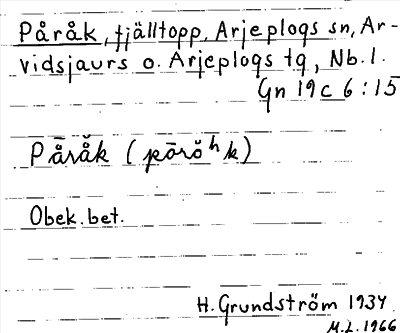 Påråk, fjälltopp, Arjeplogs sn, Ar-
vidsjaurs o. Arjeplogs tg, Nb. l.
Gn 19c 6:15
Pā̊rå̆k (pårŏ̊ʰk)
Obek. bet.
H. Grundström 1934
M.L. 1966